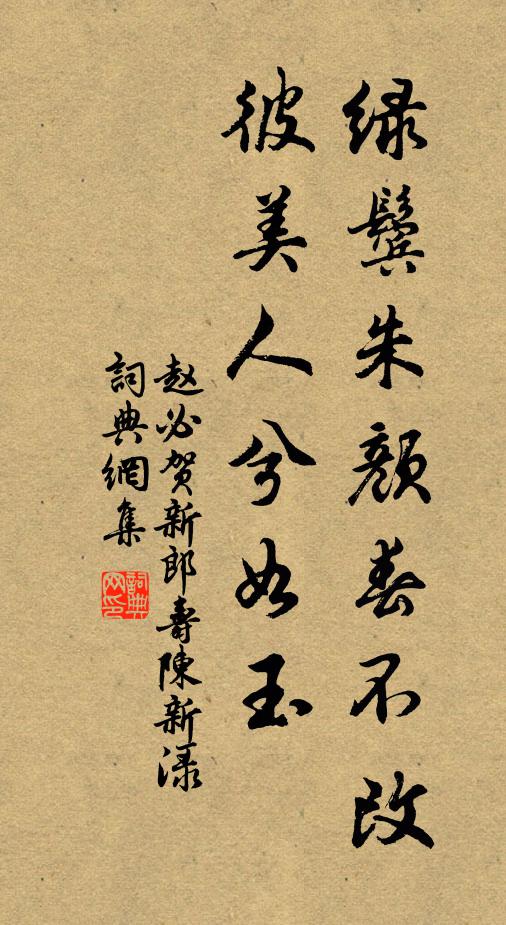 绿鬓朱颜春不改
彼美人兮如玉
赵必贺新郎寿陈新渌
詞典網集
詞典网印